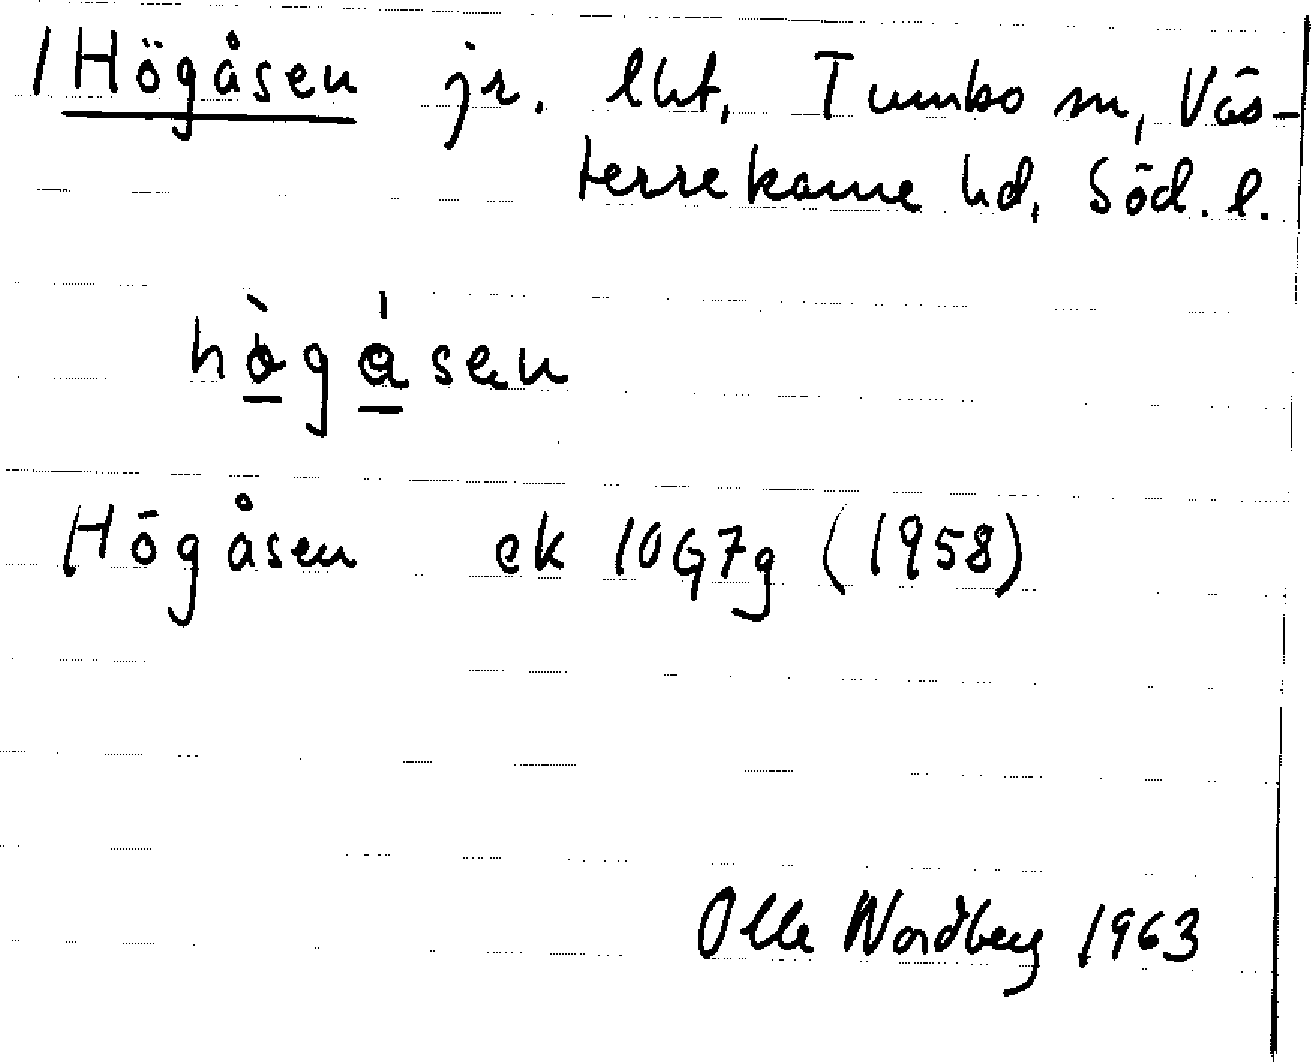 /Högåsen jr. lht, Tumbo sn, Väs-
terrekarne hd, Söd. l.
hògåsen
Högåsen ek 10G7g (1958)
Olle Nordberg 1963